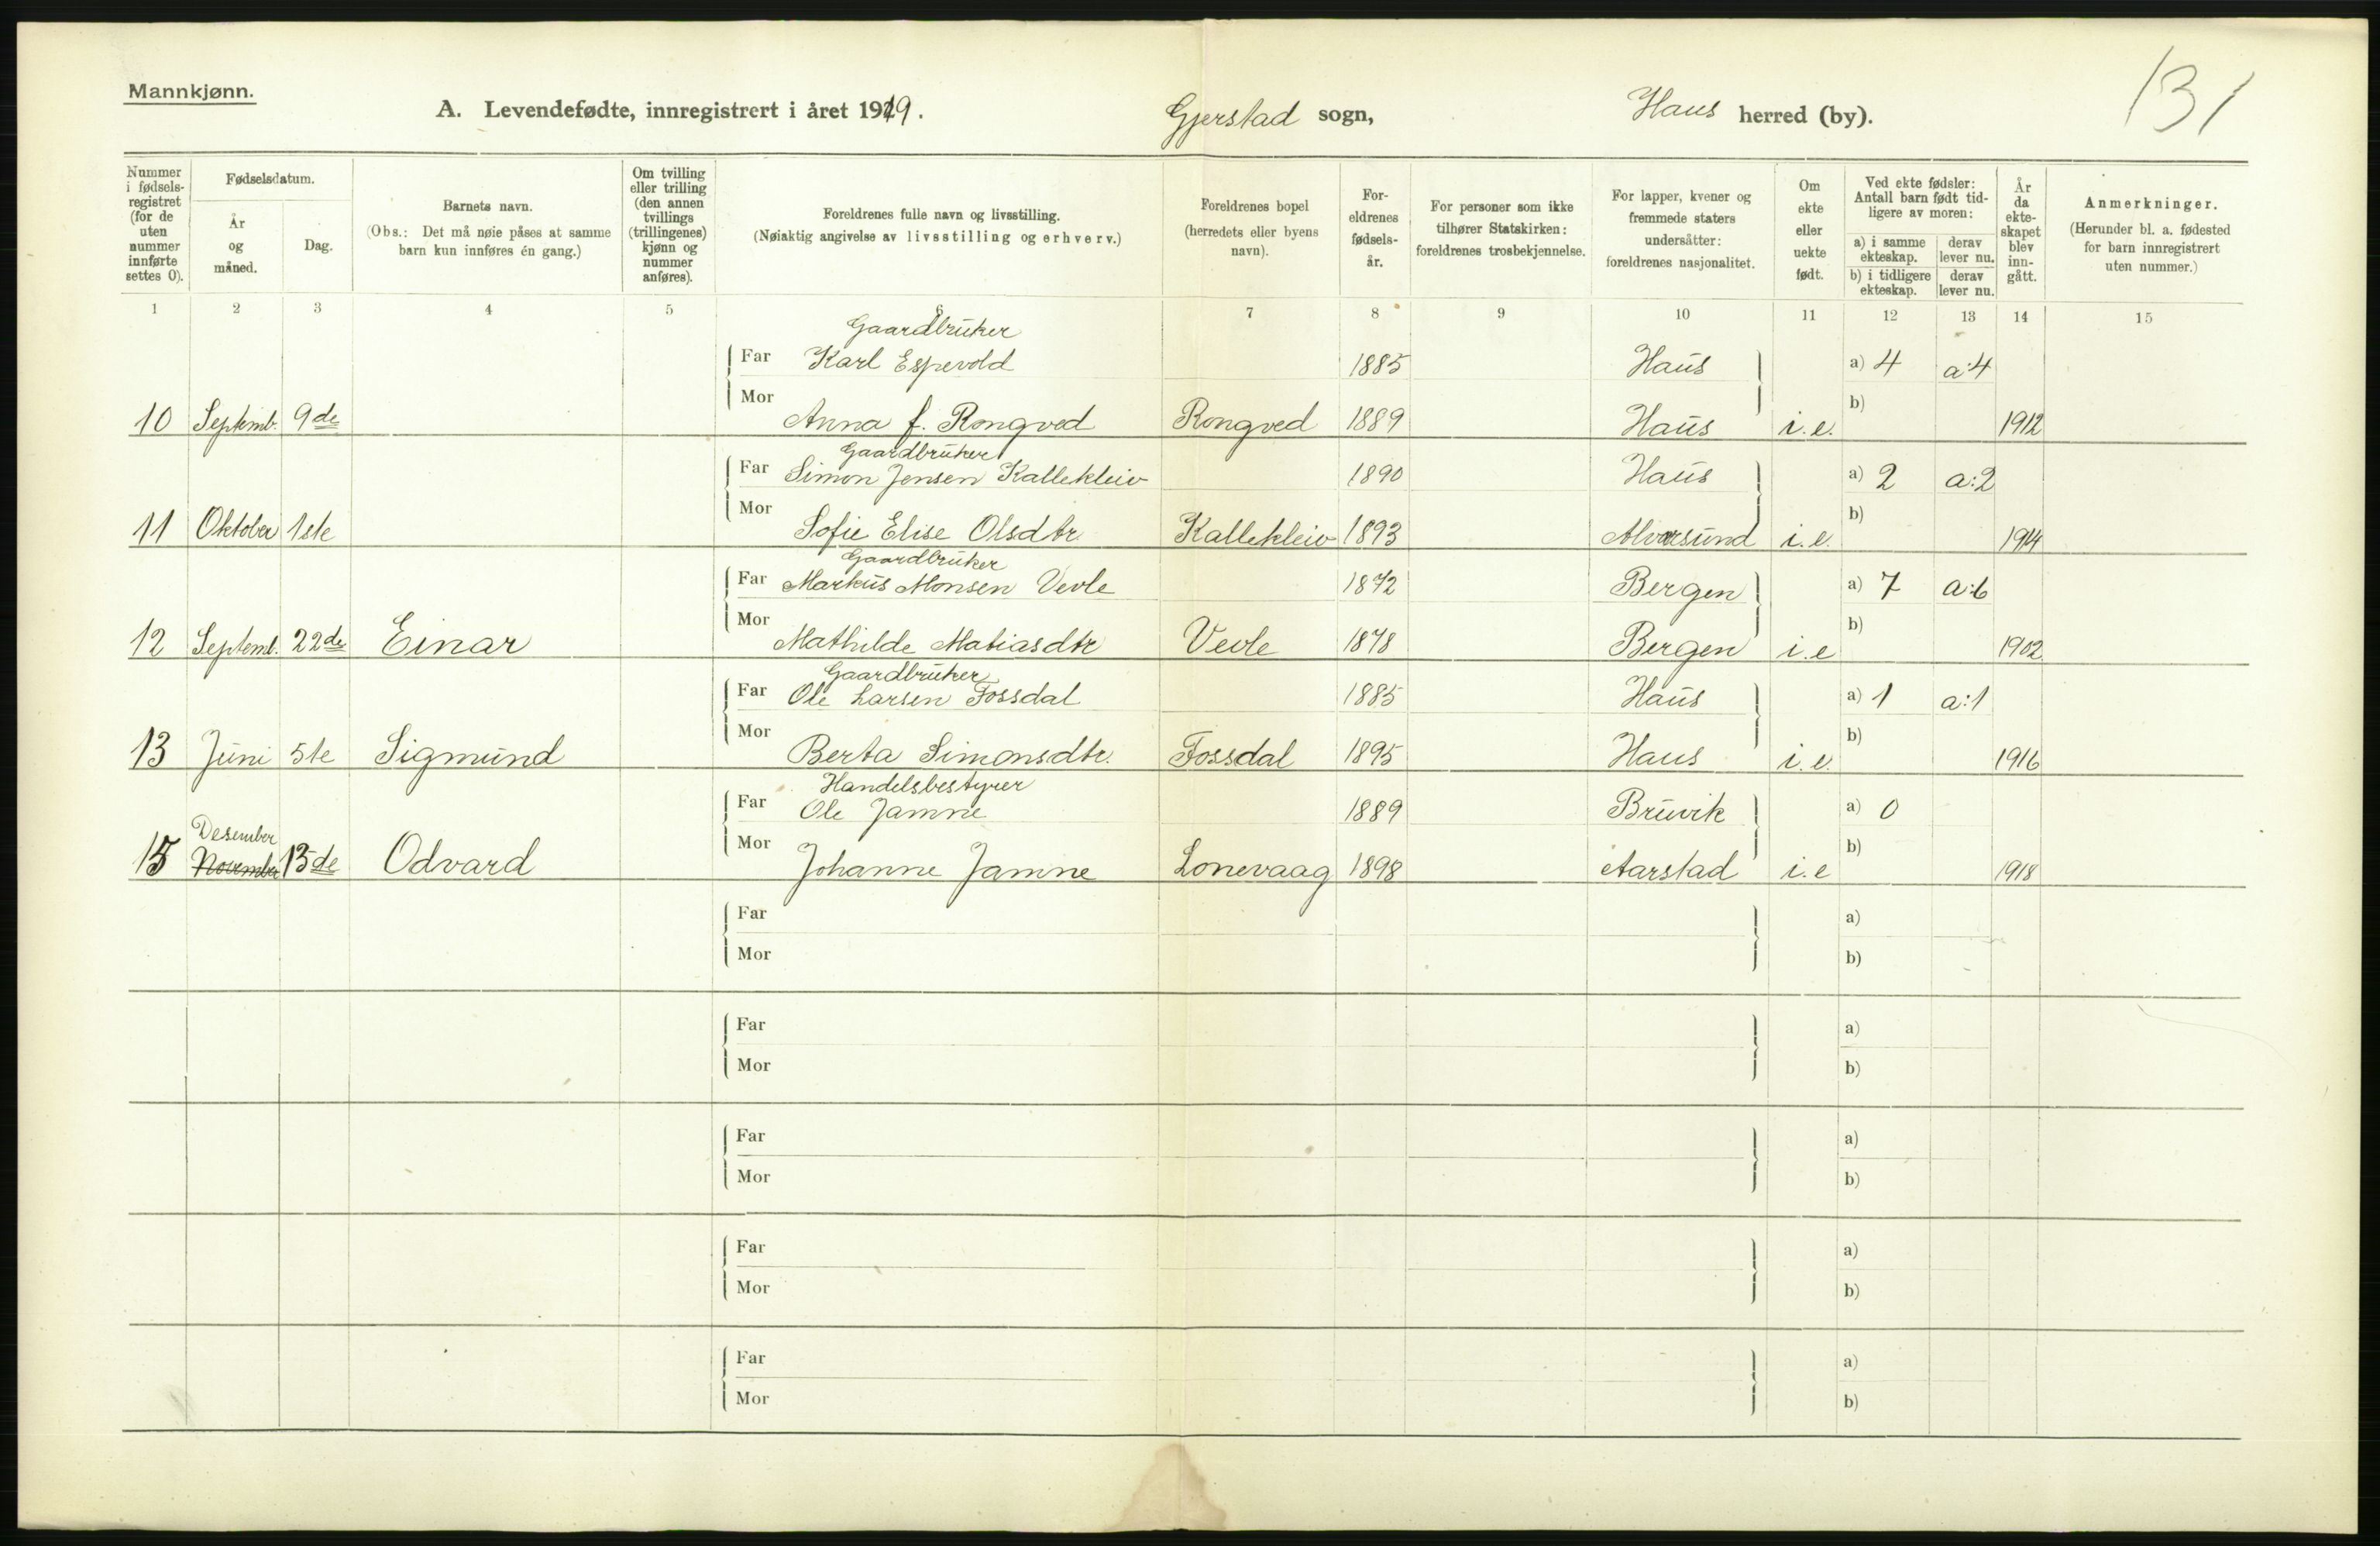 Mannkjønn.
A. Levendefødte, innregistrert i året 1919. Gjerstad sogn, Haus herred (by). 131
Nummer i fødsels-registret (for de uten nummer innførte settes 0).
Fødselsdatum.
År og måned.
Dag.
Barnets navn.
(Obs.: Det må nøie påses at samme barn kun innføres én gang.)
Om tvilling eller trilling (den annen tvillings (trillingenes) kjønn og nummer anføres).
Foreldrenes fulle navn og livsstilling.
(Nøiaktig angivelse av livsstilling og erhverv.)
Foreldrenes bopel (herredets eller byens navn).
For-eldrenes fødsels-år.
For personer som ikke tilhører Statskirken: foreldrenes trosbekjennelse.
For lapper, kvener og fremmede staters undersåtter: foreldrenes nasjonalitet.
Om ekte eller uekte født.
Ved ekte fødsler: Antall barn født tid-ligere av moren:
a) i samme ekteskap. derav lever nu.
b) i tidligere ekteskap. derav lever nu.
År da ekte-skapet blev inn-gått.
Anmerkninger.
(Herunder bl. a. fødested for barn innregistrert uten nummer.)
1 2 3 4 5 6 7 8 9 10 11 12 13 14 15
Gaardbruker
Far Karl Espevold 1885 Haus a) 4 a:4
10 Septemb. 9de Mor Anna f. Rongved Rongved 1889 Haus i.e. b) 1912
Gaardbruker
Far Simon Jensen Kallekleiv 1890 Haus a) 2 a:2
11 Oktober 1ste Mor Sofie Elise Olsdtr Kallekleiv 1893 Alversund i.e. b) 1914
Gaardbruker
Far Markus Monsen Vevle 1872 Bergen a) 7 a:6
12 Septemb. 22de Einar Mor Mathilde Matiasdtr Vevle 1878 Bergen i.e b) 1902
Gaardbruker
Far Ole Larsen Fossdal 1885 Haus a) 1 a:1
13 Juni 5te Sigmund Mor Berta Simonsdtr. Fossdal 1895 Haus i.e. b) 1916
Handelsbestyrer
Far Ole Jamne 1889 Bruvik a) 0
Desember
15 November 13de Odvard Mor Johanne Jamne Lonevaag 1898 Aarstad i.e b) 1918
Far a)
Mor b)
Far a)
Mor b)
Far a)
Mor b)
Far a)
Mor b)
Far a)
Mor b)